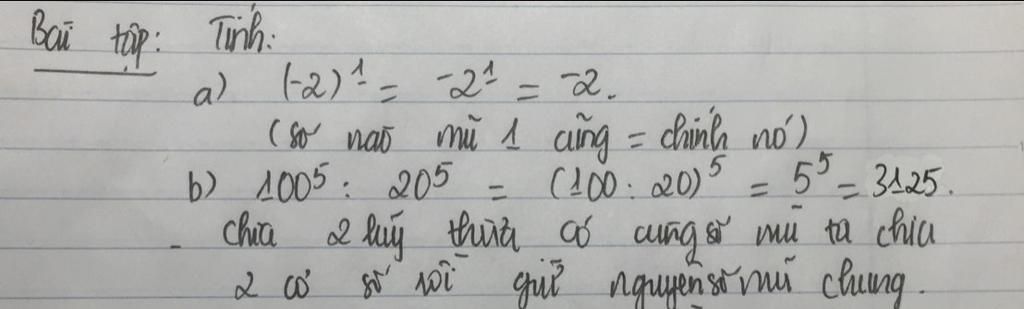 Bài tập: Tính:
a) (-2)¹ = -2¹ = -2.
(số nào mũ 1 cũng = chính nó)
b) 100⁵ : 20⁵ = (100 : 20)⁵ = 5⁵ = 3125.
- chia 2 luỹ thừa có cùng số mũ ta chia
2 cơ số rồi giữ nguyên số mũ chung.